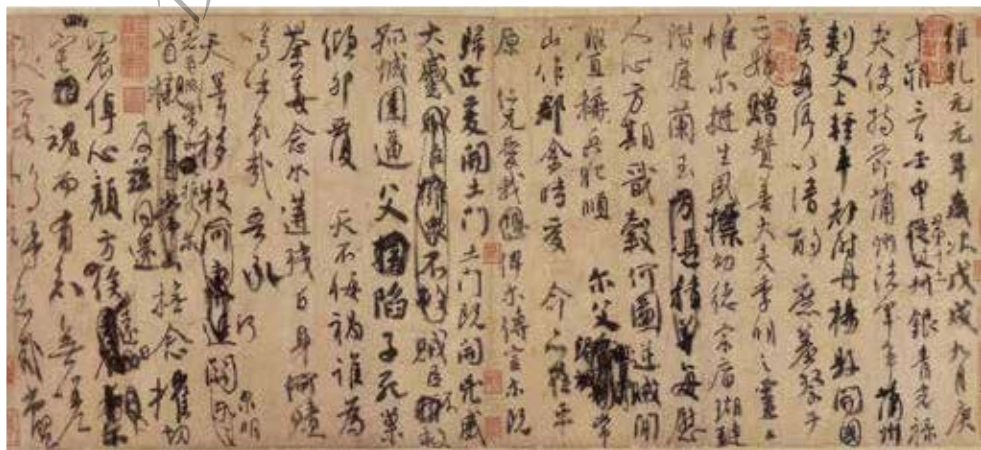 維乾元元年歲次戊戌九月庚
午朔三日壬申第十三叔銀青光祿
夫使持節蒲州諸軍事蒲州
刺史上輕車都尉丹楊縣開國
侯真卿以清酌庶羞祭于
亡姪贈贊善大夫季明之靈曰
惟爾挺生夙標幼德宗廟瑚璉
階庭蘭玉方憑積善每慰
人心方期戩穀何圖逆賊閒
釁稱兵犯順爾父竭誠常
山作郡余時受命亦在平
原仁兄愛我俾爾傳言爾既
歸止爰開土門土門既開凶威
大蹙賊臣擁眾不救賊臣不救
孤城圍逼父陷子死巢
傾卵覆天不悔禍誰為
荼毒念爾遘殘百身何贖
嗚呼哀哉吾承
天澤移牧河東近河關泉明
爾
首櫬及茲同還撫念摧切
震悼心顏方俟遠日
宅魂而有知無嗟
久客嗚呼哀哉尚饗